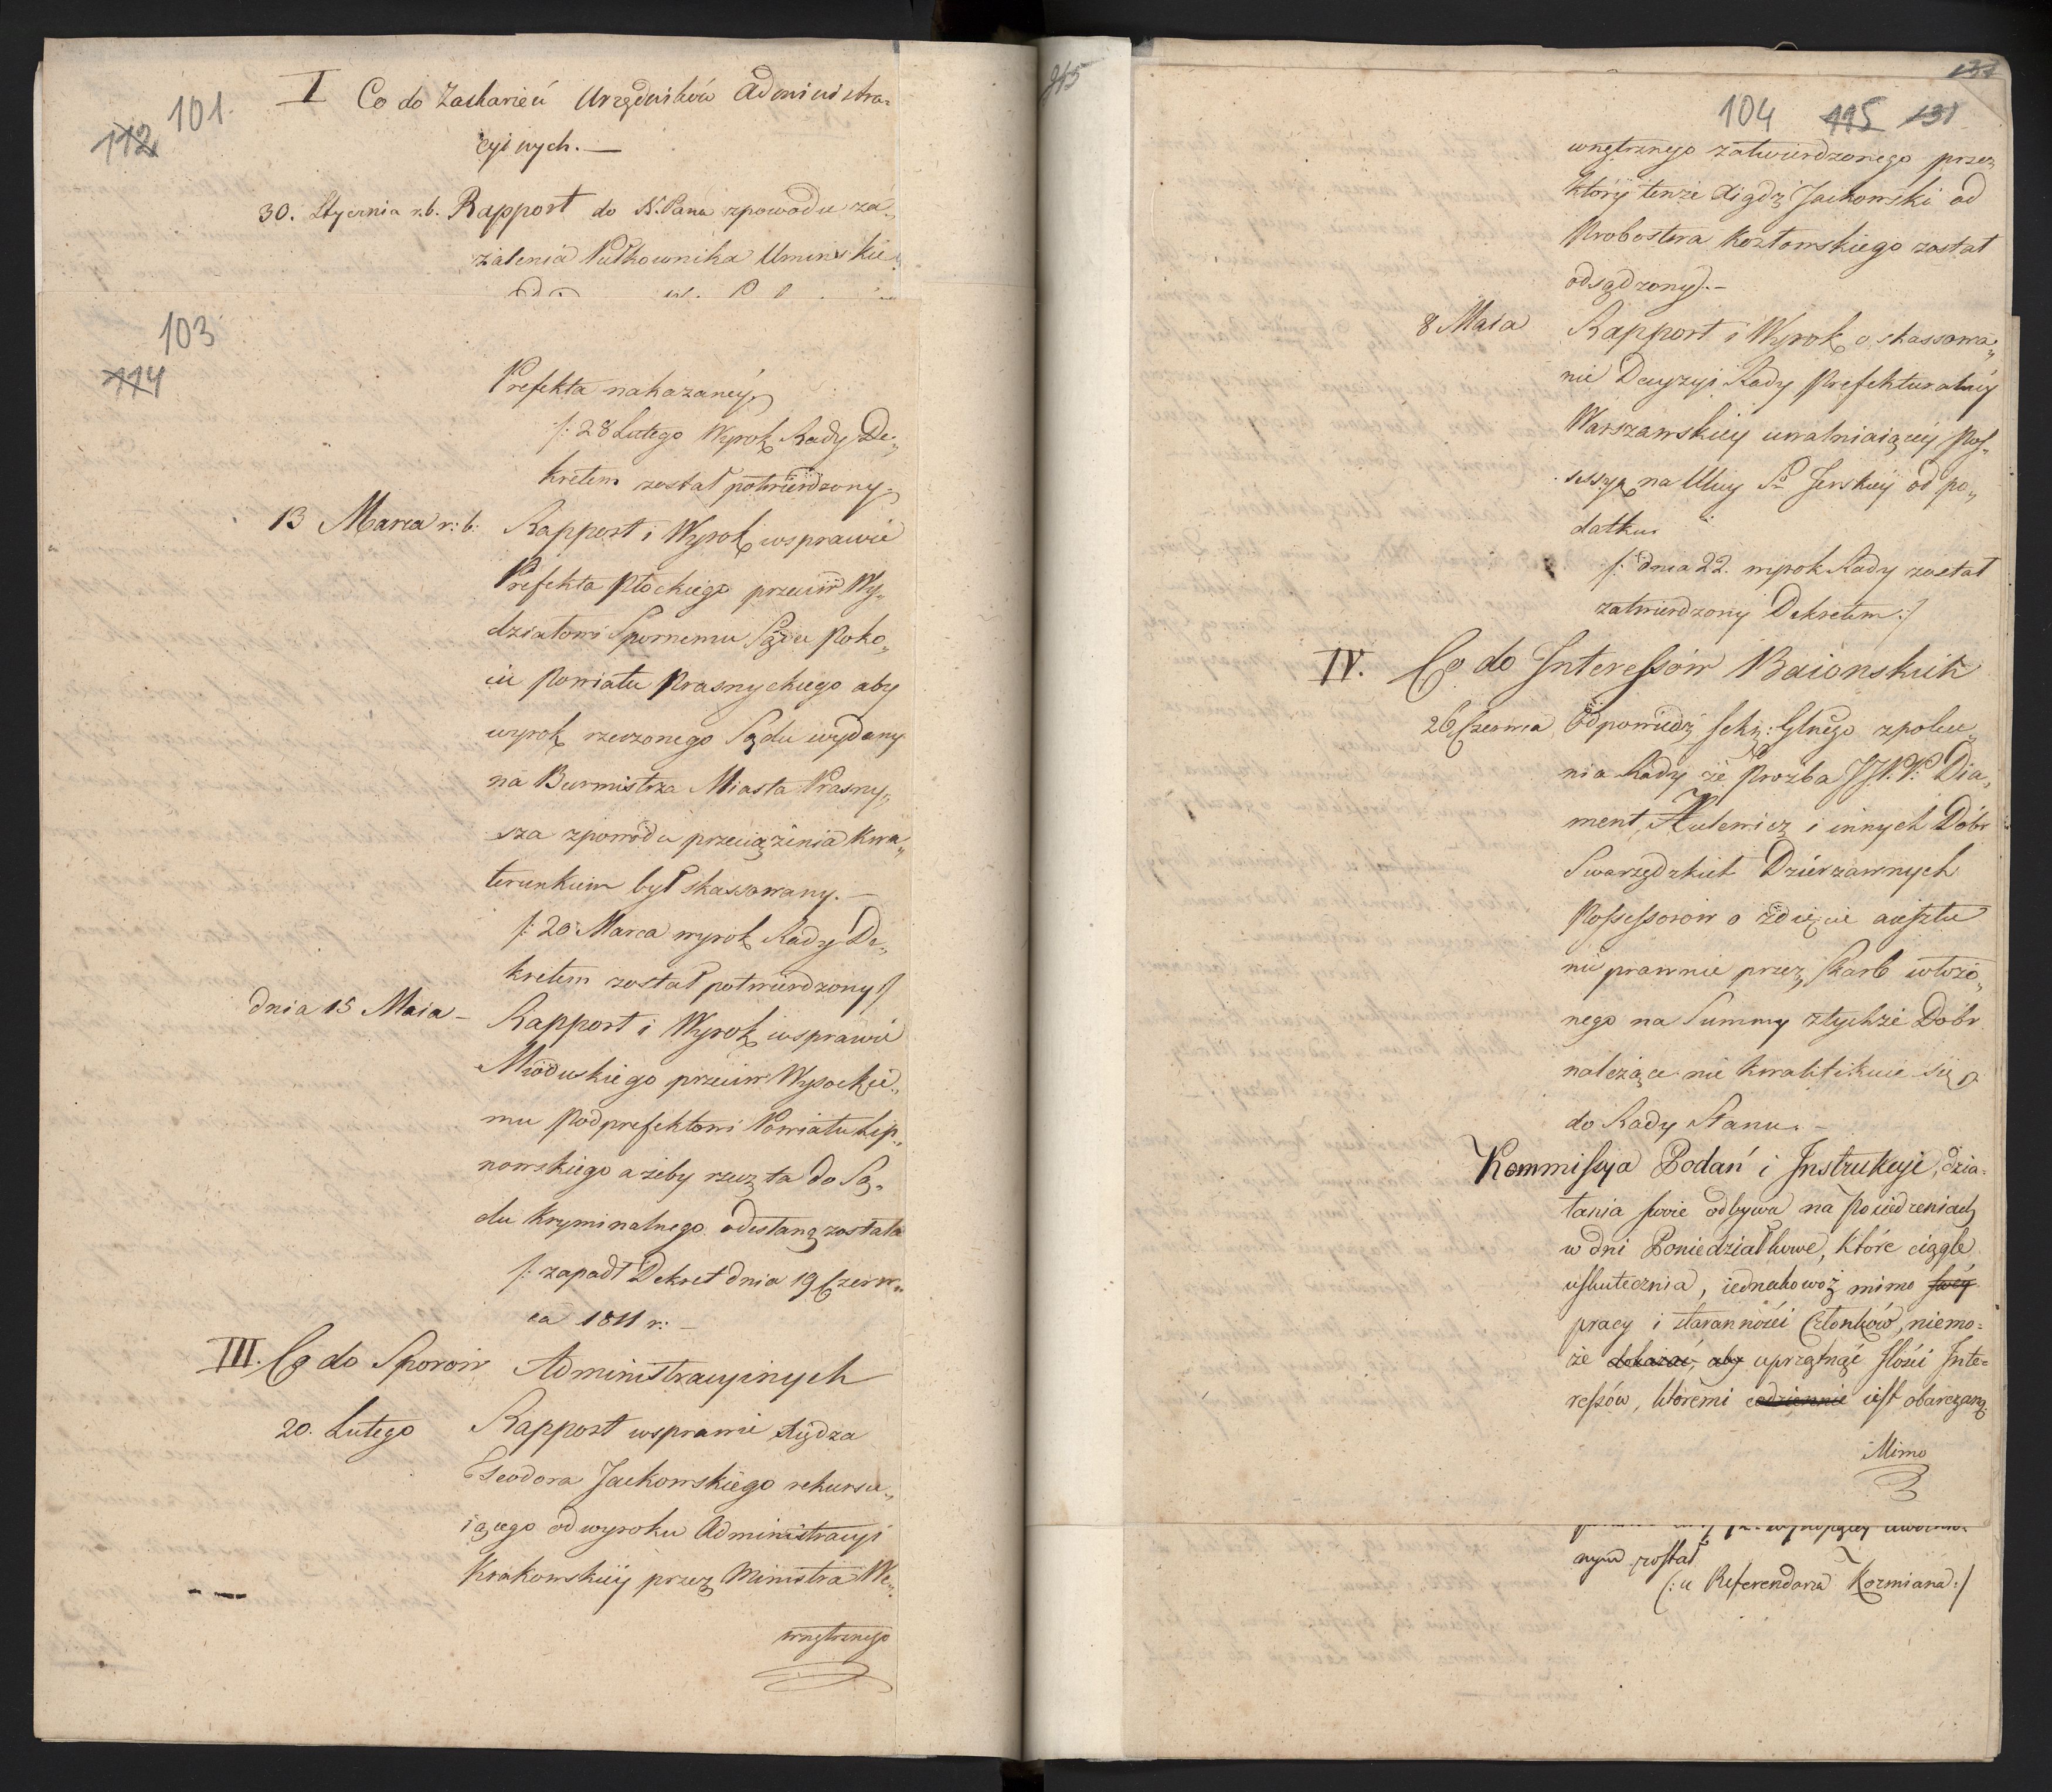 101.
112
I Co do Zaskarżeń Urzędników Administra-
cyinych. —
30. Stycznia r.b. Rapport do N. Pana zpowodu za„
żalenia Pułkownika Uminskie„
103
114
Prefekta nakazaney.
/: 28 Lutego Wyrok Rady De„
kretem został potwierdzony :/
13 Marca r: b: Rapport i Wyrok wsprawie
Prefekta Płockiego przeciw Wy„
działowi Spornemu Sądu Poko„
iu Powiatu Prasnyskiego aby
wyrok rzeczonego Sądu wydany
na Burmistrza Miasta Prasny„
sza zpowodu przeciążenia kwa„
terunkiem był skassowany. —
/: 20 Marca wyrok Rady De„
kretem został potwierdzony :/
dnia 15 Maia — Rapport i Wyrok wsprawie
Mioduskiego przeciw Wysockie„
mu Podprefektowi Powiatu Lip„
nowskiego ażeby rzecz ta do Są„
du kryminalnego odesłaną została
/: zapadł Dekret dnia 19 Czerw„
ca 1811 r: —
III. Co do Sporow Administracyinych
20. Lutego Rapport wsprawie Xiędza
Teodora Jackowskiego rekursu„
iącego od wyroku Administracyi
Krakowskiey przez Ministra We„
wnętrznego
915
131
104 115 131
wnętrznego zatwierdzonego przez
który tenże Xiądz Jackowski od
Probostwa Kozłowskiego został
odsądzony. —
8 Maia Rapport i Wyrok o skassowa„
nie Decyzyi Rady Prefekturalney
Warszawskiey uwalniaiącey Pos„
sessyą na Ulicy Sto Jerskiey od po„
datku
/: dnia 22. wyrok Rady został
zatwierdzony Dekretem :/
IV. Co do Interessów Baionskich
26 Czerwca Odpowiedź Sekr: Glnego zpolece„
nia Rady że Prozba JJ.PP. Dia„
ment, Kulewicz i innych Dóbr
Swarzędzkich Dzierzawnych
Possessorow o zdięcie aresztu
nieprawnie przez Skarb włożo„
nego na Summy ztychże Dóbr
należące nie kwalifikuie się
do Rady Stanu. —
Kommissya Podań i Instrukcyi, dzia-
łania swoie odbywa na Posiedzeniach
w dni Poniedziałkowe, które ciągle
uskutecznia, iednakowoż mimo swey
pracy i staranności Członków, niemo-
że dokazać, aby uprzątnąć Ilości Inte-
ressów, któremi codziennie iest obarczaną.
Mimo
nym został
(: u Referendarza Kozmiana :/